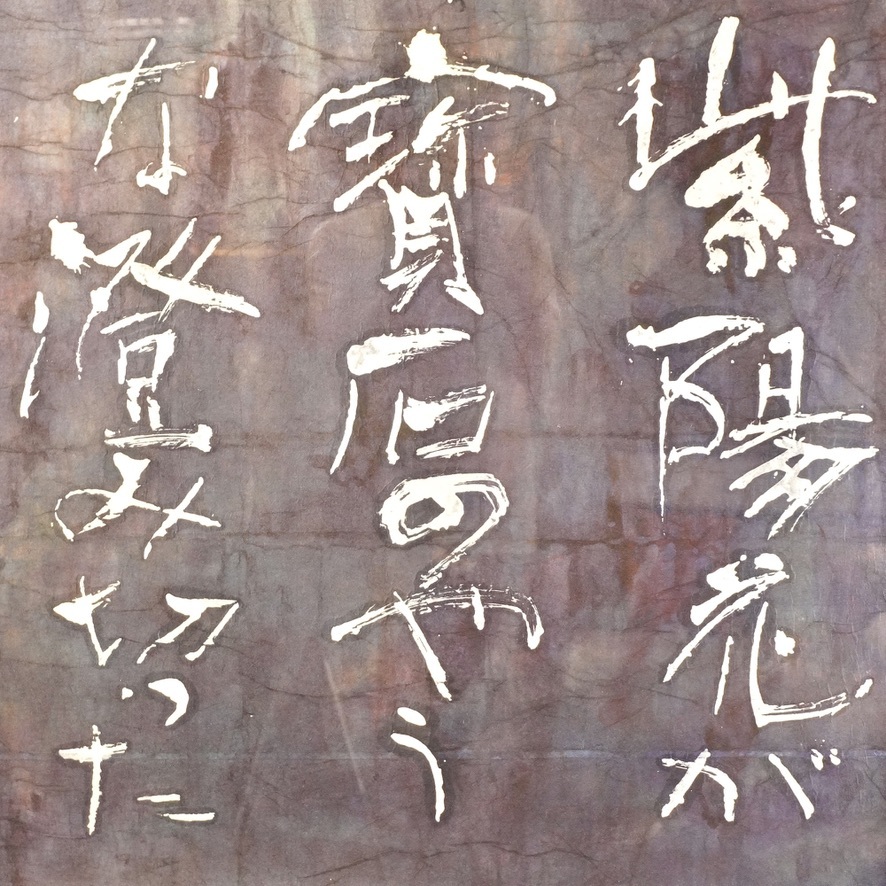 紫陽花が
寶石のやう
な澄み切った